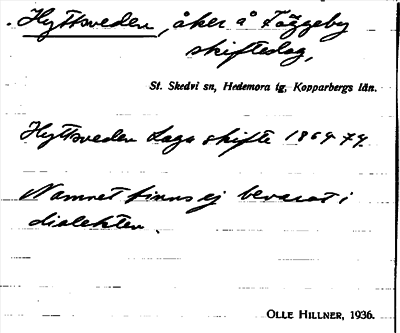 Hyttsveden, åker å Toggeby
skifteslag,
St. Skedvi sn, Hedemora tg, Kopparbergs län.
Hyttsveden Laga skifte 1869-74.
Namnet finns ej bevarat i
dialekten.
OLLE HILLNER, 1936.